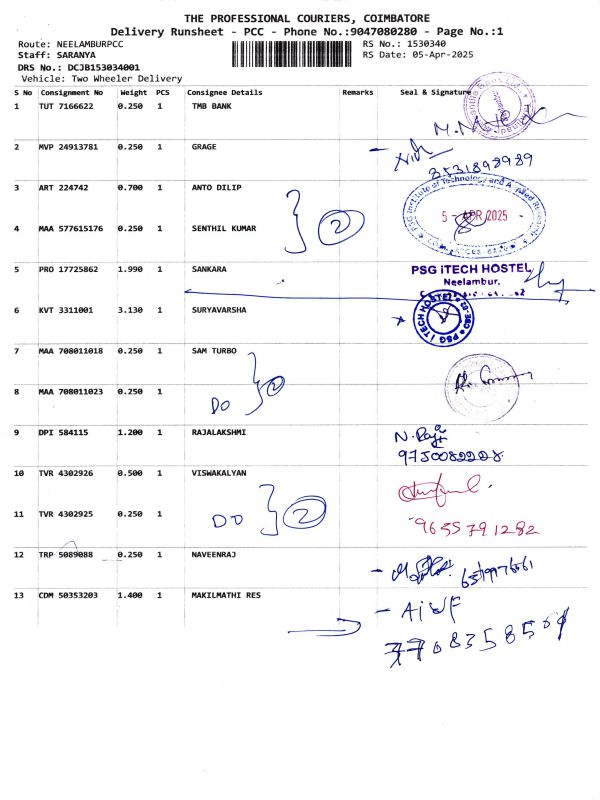 THE PROFESSIONAL COURIERS, COIMBATORE
Delivery Runsheet - PCC - Phone No.:9047080280 - Page No.:1
Route: NEELAMBURPCC RS No.: 1530340
Staff: SARANYA RS Date: 05-Apr-2025
DRS No.: DCJB153034001
Vehicle: Two Wheeler Delivery
S No Consignment No Weight PCS Consignee Details Remarks Seal & Signature
1 TUT 7166622 0.250 1 TMB BANK
2 MVP 24913781 0.250 1 GRAGE
8531898989
3 ART 224742 0.700 1 ANTO DILIP
PSG Institute of Technology and Applied Research
2 5 - APR 2025
4 MAA 577615176 0.250 1 SENTHIL KUMAR
5 PRO 17725862 1.990 1 SANKARA PSG iTECH HOSTEL
Neelambur,
6 KVT 3311001 3.130 1 SURYAVARSHA
PSG iTECH HOSTEL CBE-62
7 MAA 708011018 0.250 1 SAM TURBO
2
8 MAA 708011023 0.250 1
DO
9 DPI 584115 1.200 1 RAJALAKSHMI N. Raji
9750082228
10 TVR 4302926 0.500 1 VISWAKALYAN
11 TVR 4302925 0.250 1 DO 2
9655791282
12 TRP 5089088 0.250 1 NAVEENRAJ
13 CDM 50353203 1.400 1 MAKILMATHI RES
7708358509